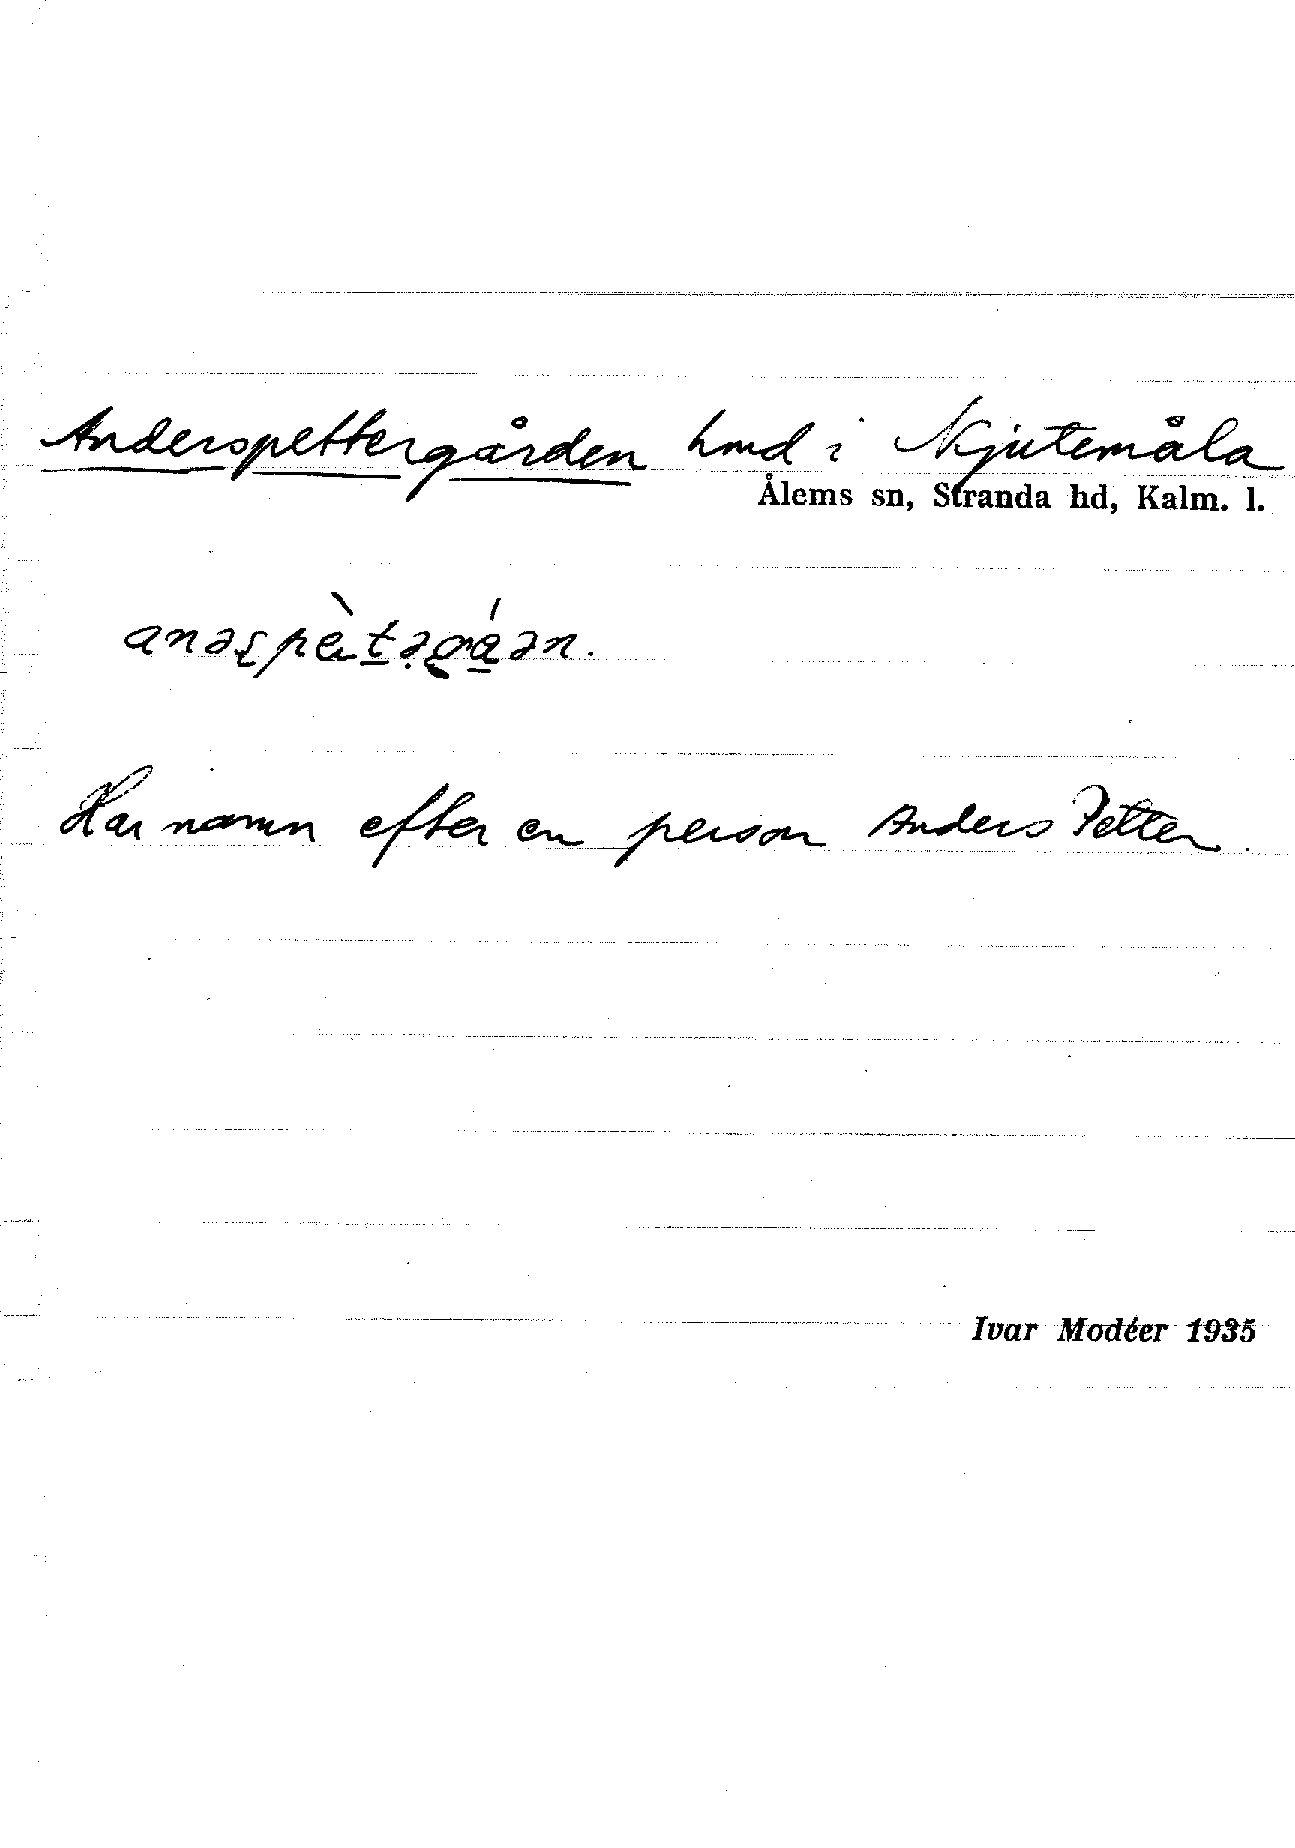 Anderspettergården hmd i Skjutemåla
Ålems sn, Stranda hd, Kalm. l.
Har namn efter en person Anders Petter.
Ivar Modéer 1935